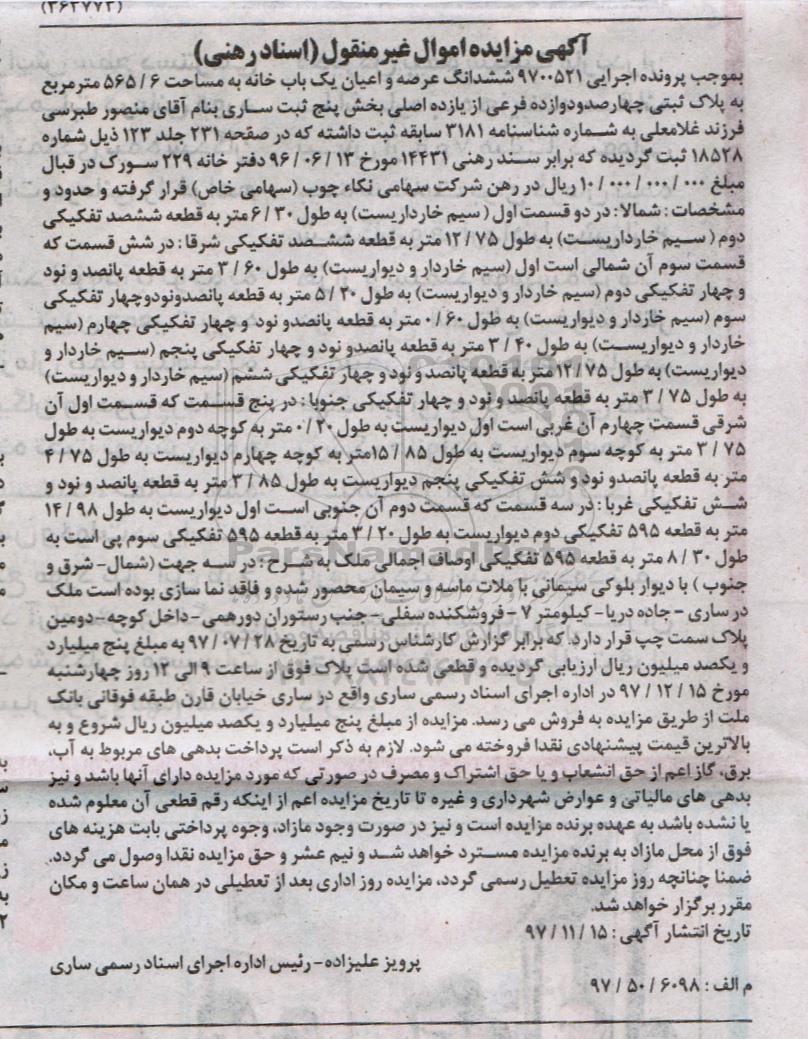 (۳۶۳۷۷۳)
آگهی مزایده اموال غیر منقول (اسناد رهنی)
بموجب پرونده اجرایی ۹۷۰۰۵۲۱ ششدانگ عرصه و اعیان یک باب خانه به مساحت ۵۶۵/۶ مترمربع
به پلاک ثبتی چهارصدودوازده فرعی از یازده اصلی بخش پنج ثبت ساری بنام آقای منصور طبرسی
فرزند غلامعلی به شماره شناسنامه ۳۱۸۱ سابقه ثبت داشته که در صفحه ۲۳۱ جلد ۱۲۳ ذیل شماره
۱۸۵۲۸ ثبت گردیده که برابر سند رهنی ۱۴۴۳۱ مورخ ۹۶/۰۶/۱۳ دفتر خانه ۲۲۹ سورک در قبال
مبلغ ۱۰/۰۰۰/۰۰۰/۰۰۰ ریال در رهن شرکت سهامی نکاء چوب (سهامی خاص) قرار گرفته و حدود و
مشخصات : شمالا: در دو قسمت اول (سیم خارداریست) به طول ۶/۳۰ متر به قطعه ششصد تفکیکی
دوم (سیم خارداریست) به طول ۱۲/۷۵ متر به قطعه ششصد تفکیکی شرقا: در شش قسمت که
قسمت سوم آن شمالی است اول (سیم خاردار و دیواریست) به طول ۳/۶۰ متر به قطعه پانصد و نود
و چهار تفکیکی دوم (سیم خاردار و دیواریست) به طول ۵/۲۰ متر به قطعه پانصدونودوچهار تفکیکی
سوم (سیم خاردار و دیواریست) به طول ۰/۶۰ متر به قطعه پانصدو نود و چهار تفکیکی چهارم (سیم
خاردار و دیواریست) به طول ۳/۴۰ متر به قطعه پانصدو نود و چهار تفکیکی پنجم (سیم خاردار و
دیواریست) به طول ۱۲/۷۵ متر به قطعه پانصد و نود و چهار تفکیکی ششم (سیم خاردار و دیواریست)
به طول ۳/۷۵ متر به قطعه پانصد و نود و چهار تفکیکی جنوبا: در پنج قسمت که قسمت اول آن
شرقی قسمت چهارم آن غربی است اول دیواریست به طول ۰/۲۰ متر به کوچه دوم دیواریست به طول
۳/۷۵ متر به کوچه سوم دیواریست به طول ۱۵/۸۵ متر به کوچه چهارم دیواریست به طول ۴/۷۵
متر به قطعه پانصدو نود و شش تفکیکی پنجم دیواریست به طول ۳/۸۵ متر به قطعه پانصد و نود و
شش تفکیکی غربا: در سه قسمت که قسمت دوم آن جنوبی است اول دیواریست به طول ۱۴/۹۸
متر به قطعه ۵۹۵ تفکیکی دوم دیواریست به طول ۳/۲۰ متر به قطعه ۵۹۵ تفکیکی سوم پی است به
طول ۸/۳۰ متر به قطعه ۵۹۵ تفکیکی اوصاف اجمالی ملک به شرح: در سه جهت (شمال- شرق و
جنوب) با دیوار بلوکی سیمانی با ملات ماسه و سیمان محصور شده و فاقد نما سازی بوده است ملک
در ساری - جاده دریا- کیلومتر ۷ - فروشکنده سفلی- جنب رستوران دورهمی- داخل کوچه- دومین
پلاک سمت چپ قرار دارد. که برابر گزارش کارشناس رسمی به تاریخ ۹۷/۰۷/۲۸ به مبلغ پنج میلیارد
و یکصد میلیون ریال ارزیابی گردیده و قطعی شده است پلاک فوق از ساعت ۹ الی ۱۲ روز چهارشنبه
مورخ ۹۷/۱۲/۱۵ در اداره اجرای اسناد رسمی ساری واقع در ساری خیابان قارن طبقه فوقانی بانک
ملت از طریق مزایده به فروش می رسد. مزایده از مبلغ پنج میلیارد و یکصد میلیون ریال شروع و به
بالاترین قیمت پیشنهادی نقدا فروخته می شود. لازم به ذکر است پرداخت بدهی های مربوط به آب،
برق، گاز اعم از حق انشعاب و یا حق اشتراک و مصرف در صورتی که مورد مزایده دارای آنها باشد و نیز
بدهی های مالیاتی و عوارض شهرداری و غیره تا تاریخ مزایده اعم از اینکه رقم قطعی آن معلوم شده
یا نشده باشد به عهده برنده مزایده است و نیز در صورت وجود مازاد، وجوه پرداختی بابت هزینه های
فوق از محل مازاد به برنده مزایده مسترد خواهد شد و نیم عشر و حق مزایده نقدا وصول می گردد.
ضمنا چنانچه روز مزایده تعطیل رسمی گردد، مزایده روز اداری بعد از تعطیلی در همان ساعت و مکان
مقرر برگزار خواهد شد.
تاریخ انتشار آگهی : ۹۷/۱۱/۱۵
پرویز علیزاده- رئیس اداره اجرای اسناد رسمی ساری
م الف : ۹۷/۵۰/۶۰۹۸